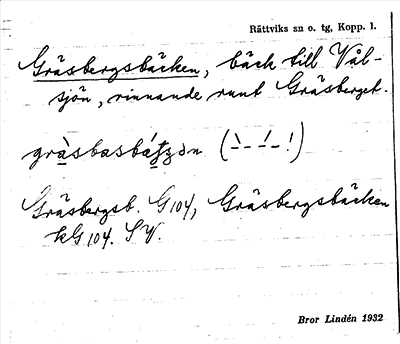 Rättviks sn o. tg, Kopp. l.
Gräsbergsbäcken, bäck till Väl-
sjön, rinnande runt Gräsberget.
Gräsbergsb. G104, Gräsbergsbäcken
kG104. SV.
Bror Lindén 1932